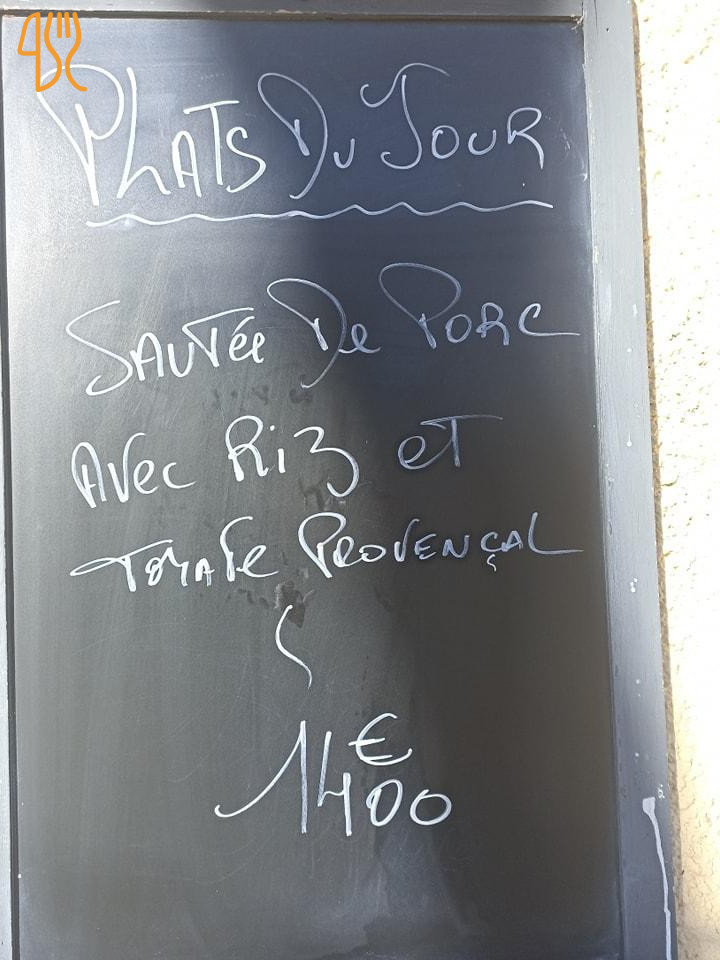 PLATS DU JOUR
SAUTÉE DE PORC
AVEC RIZ ET
TOMATE PROVENÇAL
14€00